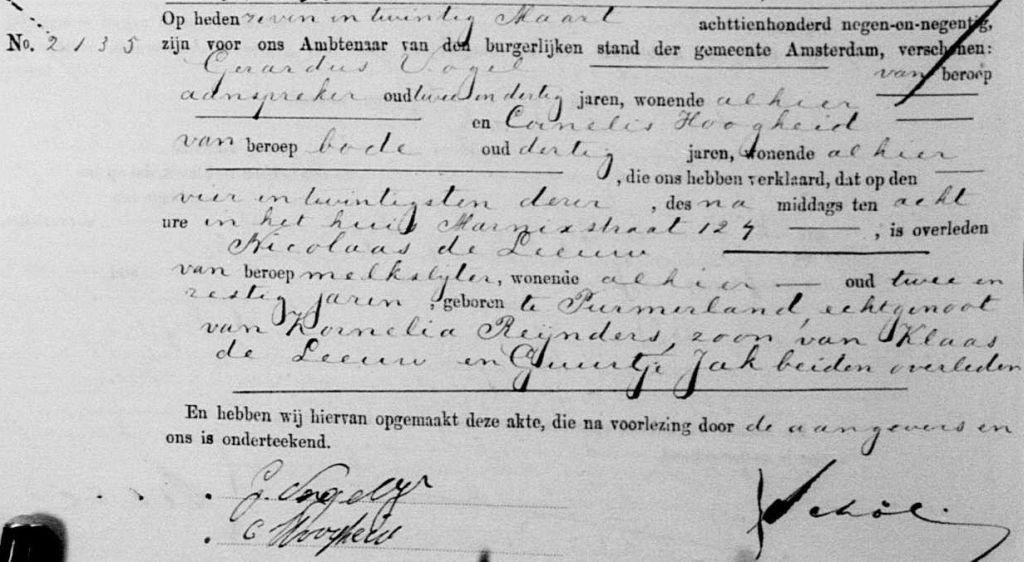 Op heden zeven en twintig Maart achttienhonderd negen-en-negentig,
No. 2135 zijn voor ons Ambtenaar van den burgerlijken stand der gemeente Amsterdam, verschenen:
Gerardus Vogel van beroep
aanspreker oud twee en dertig jaren, wonende alhier
en Cornelis Hoogheid
van beroep bode oud dertig jaren, wonende alhier
, die ons hebben verklaard, dat op den
vier en twintigsten dezer, des na middags ten acht
ure in het huis Marnixstraat 127, is overleden
Nicolaas de Leeuw
van beroep melkslyter, wonende alhier oud twee en
zestig jaren, geboren te Purmerland, echtgenoot
van Kornelia Reijnders, zoon van Klaas
de Leeuw en Guurtje Jak beiden overleden
En hebben wij hiervan opgemaakt deze akte, die na voorlezing door de aangevers en
ons is onderteekend.
G. Vogel
C Hoogheid